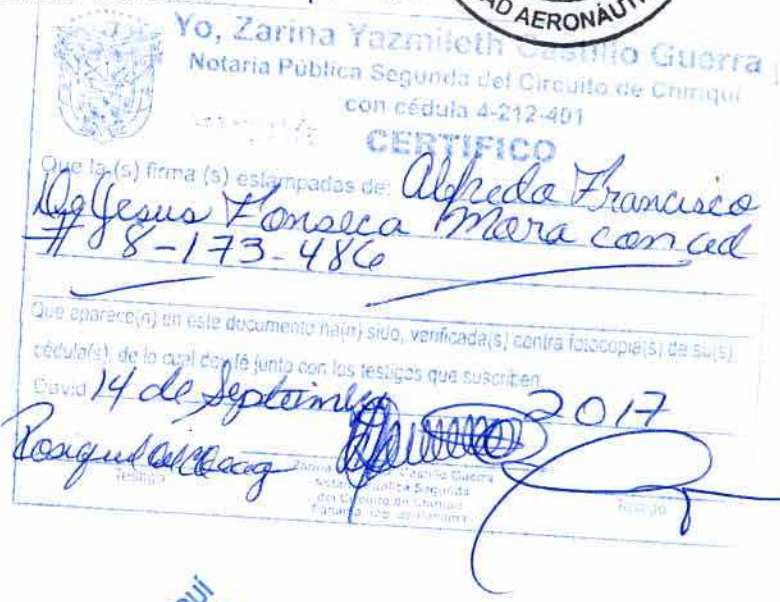 AD AERONÁUT
Yo, Zarina Yazmileth Castillo Guerra
Notaria Pública Segunda del Circuito de Chiriquí
con cédula 4-212-401
CERTIFICO
Que la (s) firma (s) estampadas de: Alfredo Francisco
De Jesus Fonseca Mora con ced
# 8-173-486
Que aparece(n) en este documento ha(n) sido, verificada(s) contra fotocopia(s) de su(s)
cédula(s), de lo cual doy fé junto con los testigos que suscriben.
David 14 de Septiembre 2017
Testigo
Zarina Castillo Guerra
Notaria Pública Segunda
del Circuito de Chiriquí
Testigo
quí